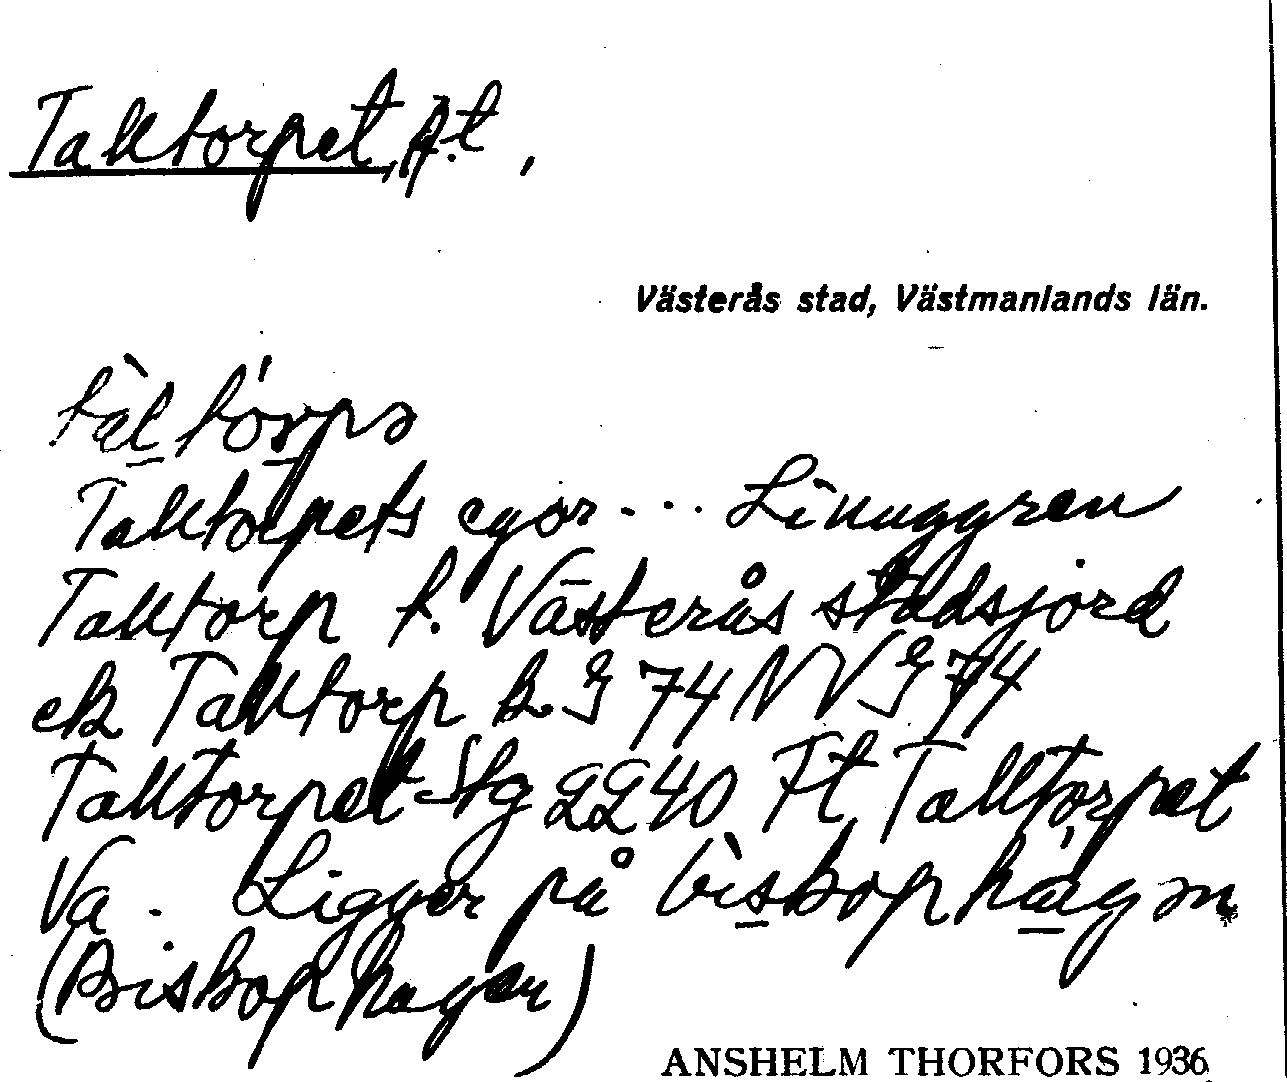 Talltorpet, f.t,
Västerås stad, Västmanlands län.
tàl tórpə
Talltorpets egor... Linnggren
Talltorp t. Västerås stadsjord
ek Talltorp k G 74 NV G 74
Talltorpet Stg 2240 Ft Talltorpet
Va. Ligger på bìskophágən
(Biskophagen)
ANSHELM THORFORS 1936